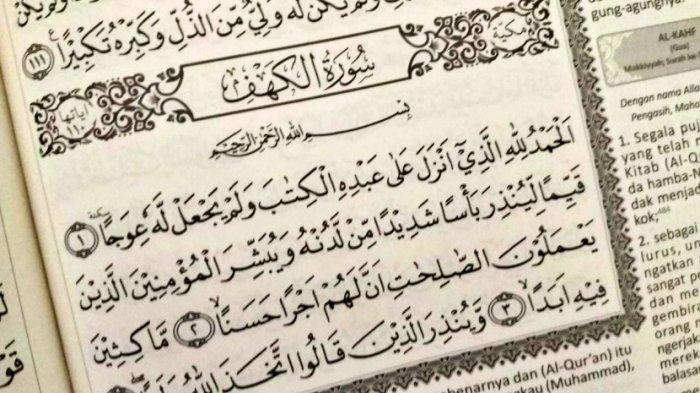 وَلَمْ يَكُنْ لَّهٗ وَلِيٌّ مِّنَ الذُّلِّ وَكَبِّرْهُ تَكْبِيْرًا ࣖ ١١١
سُوْرَةُ الْكَهْفِ
مكيّة
اٰياتها ١١٠
بِسْمِ اللّٰهِ الرَّحْمٰنِ الرَّحِيْمِ
اَلْحَمْدُ لِلّٰهِ الَّذِيْٓ اَنْزَلَ عَلٰى عَبْدِهِ الْكِتٰبَ وَلَمْ يَجْعَلْ لَّهٗ عِوَجًا ١
قَيِّمًا لِّيُنْذِرَ بَأْسًا شَدِيْدًا مِّنْ لَّدُنْهُ وَيُبَشِّرَ الْمُؤْمِنِيْنَ الَّذِيْنَ
يَعْمَلُوْنَ الصّٰلِحٰتِ اَنَّ لَهُمْ اَجْرًا حَسَنًاۙ ٢ مَّاكِثِيْنَ
فِيْهِ اَبَدًاۙ ٣ وَّيُنْذِرَ الَّذِيْنَ قَالُوا اتَّخَذَ اللّٰهُ
gung-agungnya.
AL-KAHF
(Gua)
Makkiyyah; Surah ke-
Dengan nama Alla
Pengasih, Maha
1. Segala puj
yang telah m
Kitab (Al-Q
da hamba-N
dak menjad
kok;
2. sebagai
lurus, u
ngatkan
sangat p
dan me
gembira
orang
ngerjak
mereka
balasa
benarnya dan (Al-Qur'an) itu
gkau (Muhammad),